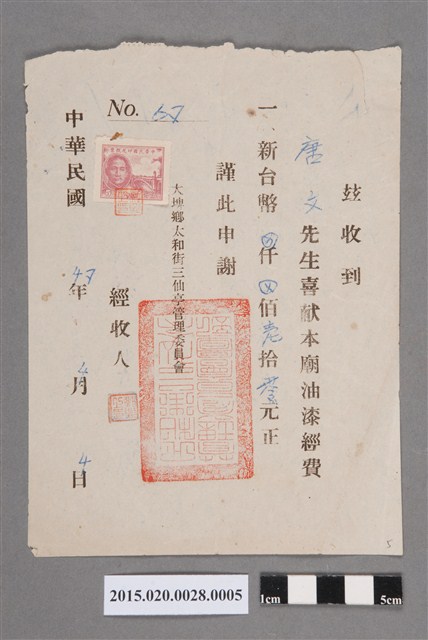 茲收到
唐文先生喜献本廟油漆經費
一、新台幣 仟 佰壱拾 元正
謹此申謝
大埤鄉太和街三仙亭管理委員會
經收人
No.
中華民國 47年4月4日
5
2015.020.0028.0005
1cm 5cm